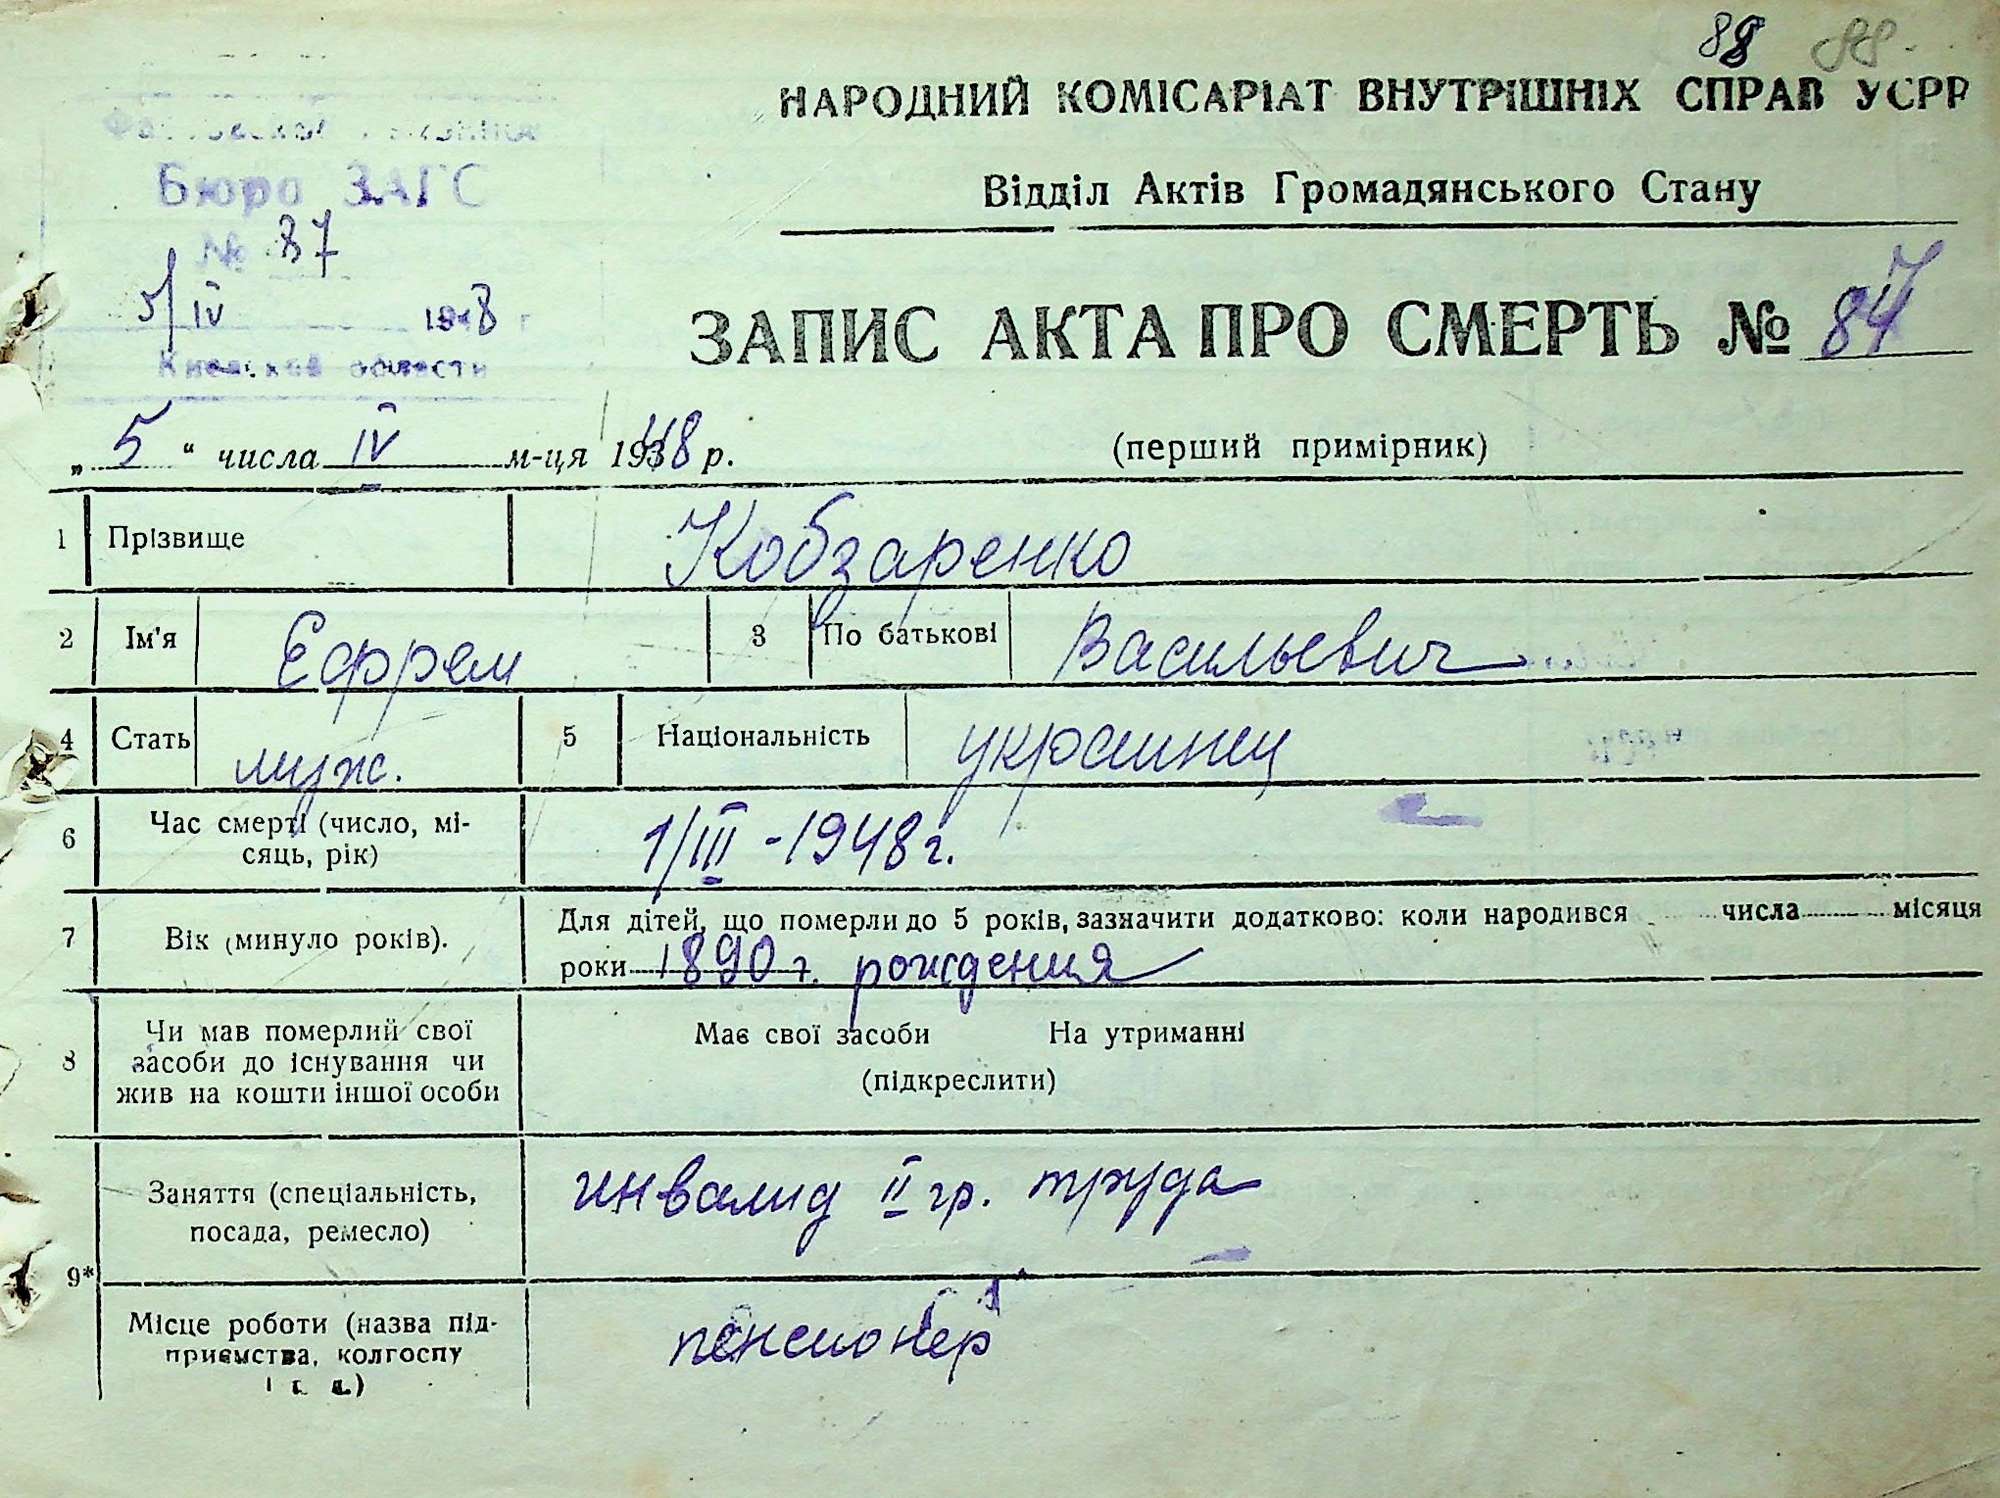 88 88
НАРОДНИЙ КОМІСАРІАТ ВНУТРІШНІХ СПРАВ УСРР
Відділ Актів Громадянського Стану
Бюро ЗАГС
№ 87
5/IV 1948 г
Киевской области
ЗАПИС АКТА ПРО СМЕРТЬ № 87
„ 5 “ числа IV м-ця 1948 р.
(перший примірник)
1 Прізвище Кобзаренко
2 Ім'я Ефрем 3 По батькові Васильевич
4 Стать муж. 5 Національність украинец
6 Час смерті (число, мі-
сяць, рік) 1/III - 1948 г.
7 Вік (минуло років). Для дітей, що померли до 5 років, зазначити додатково: коли народився числа місяця
роки 1890 г. рождения
8 Чи мав померлий свої
засоби до існування чи
жив на кошти іншої особи
Має свої засоби На утриманні
(підкреслити)
9* Заняття (спеціальність,
посада, ремесло) инвалид II гр. труда
Місце роботи (назва під-
приємства, колгоспу
і т. д.) пенсионер